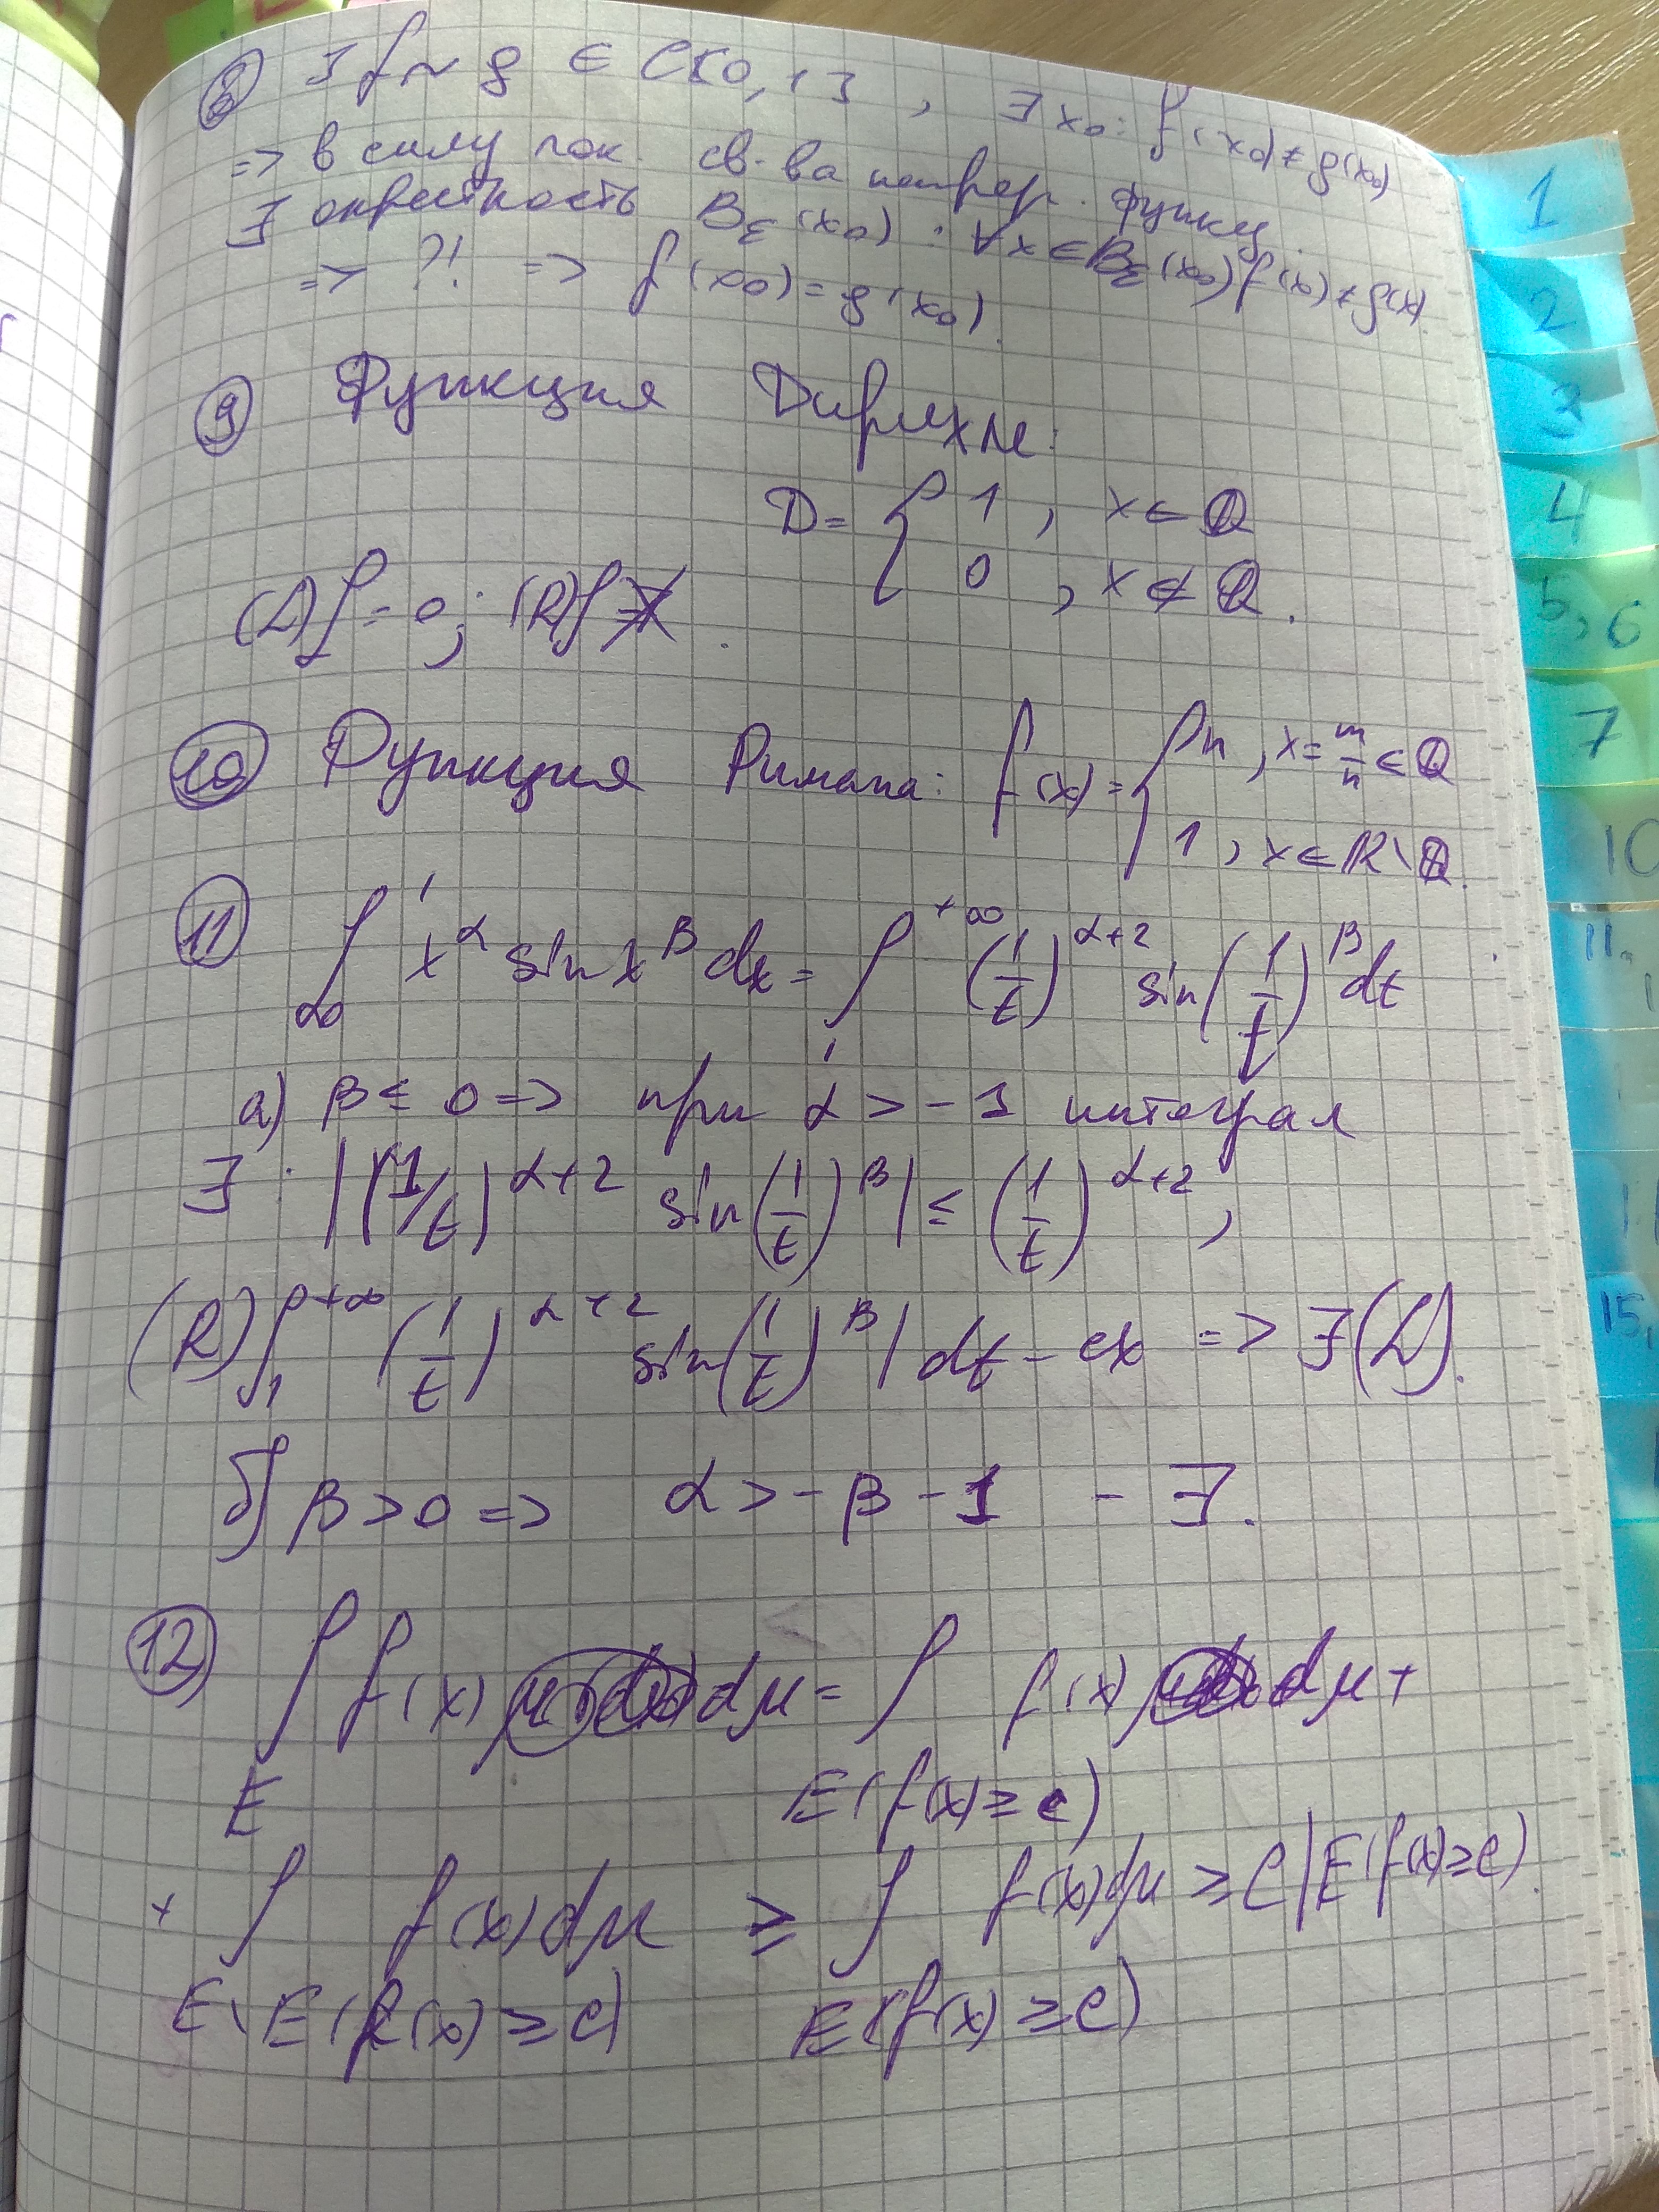 ⑧ ∃ f ~ g ∈ C[0,1], ∃ x₀: f(x₀) ≠ g(x₀)
=> в силу лок. св-ва непрер. функц.
∃ окрестность B_ε(x₀) : ∀x∈B_ε(x₀) f(x) ≠ g(x)
=> ?! => f(x₀) = g(x₀)
⑨ Функция Дирихле:
D = { 1, x ∈ Q
0, x ∉ Q.
(L)∫ = 0; (R)∫ ∄.
⑩ Функция Римана: f(x) = { n, x = m/n ∈ Q
1, x ∈ R\Q.
⑪ ∫₀¹ x^α sin x^β dx = ∫₁^{+∞} (1/t)^{α+2} sin(1/t)^β dt
а) β ≤ 0 => при α > -1 интеграл
∃ : |(1/t)^{α+2} sin(1/t)^β| ≤ (1/t)^{α+2},
(R)∫₁^{+∞} (1/t)^{α+2} sin(1/t)^β| dt - сх => ∃(L).
б) β > 0 => α > -β - 1 - ∃.
⑫ ∫_E f(x) dμ = ∫_{E(f(x) ≥ c)} f(x) dμ +
+ ∫_{E\E(f(x) ≥ c)} f(x)dμ ≥ ∫_{E(f(x) ≥ c)} f(x)dμ ≥ C|E(f(x) ≥ c)
1
2
3
4
5, 6
7
10
11,
15,